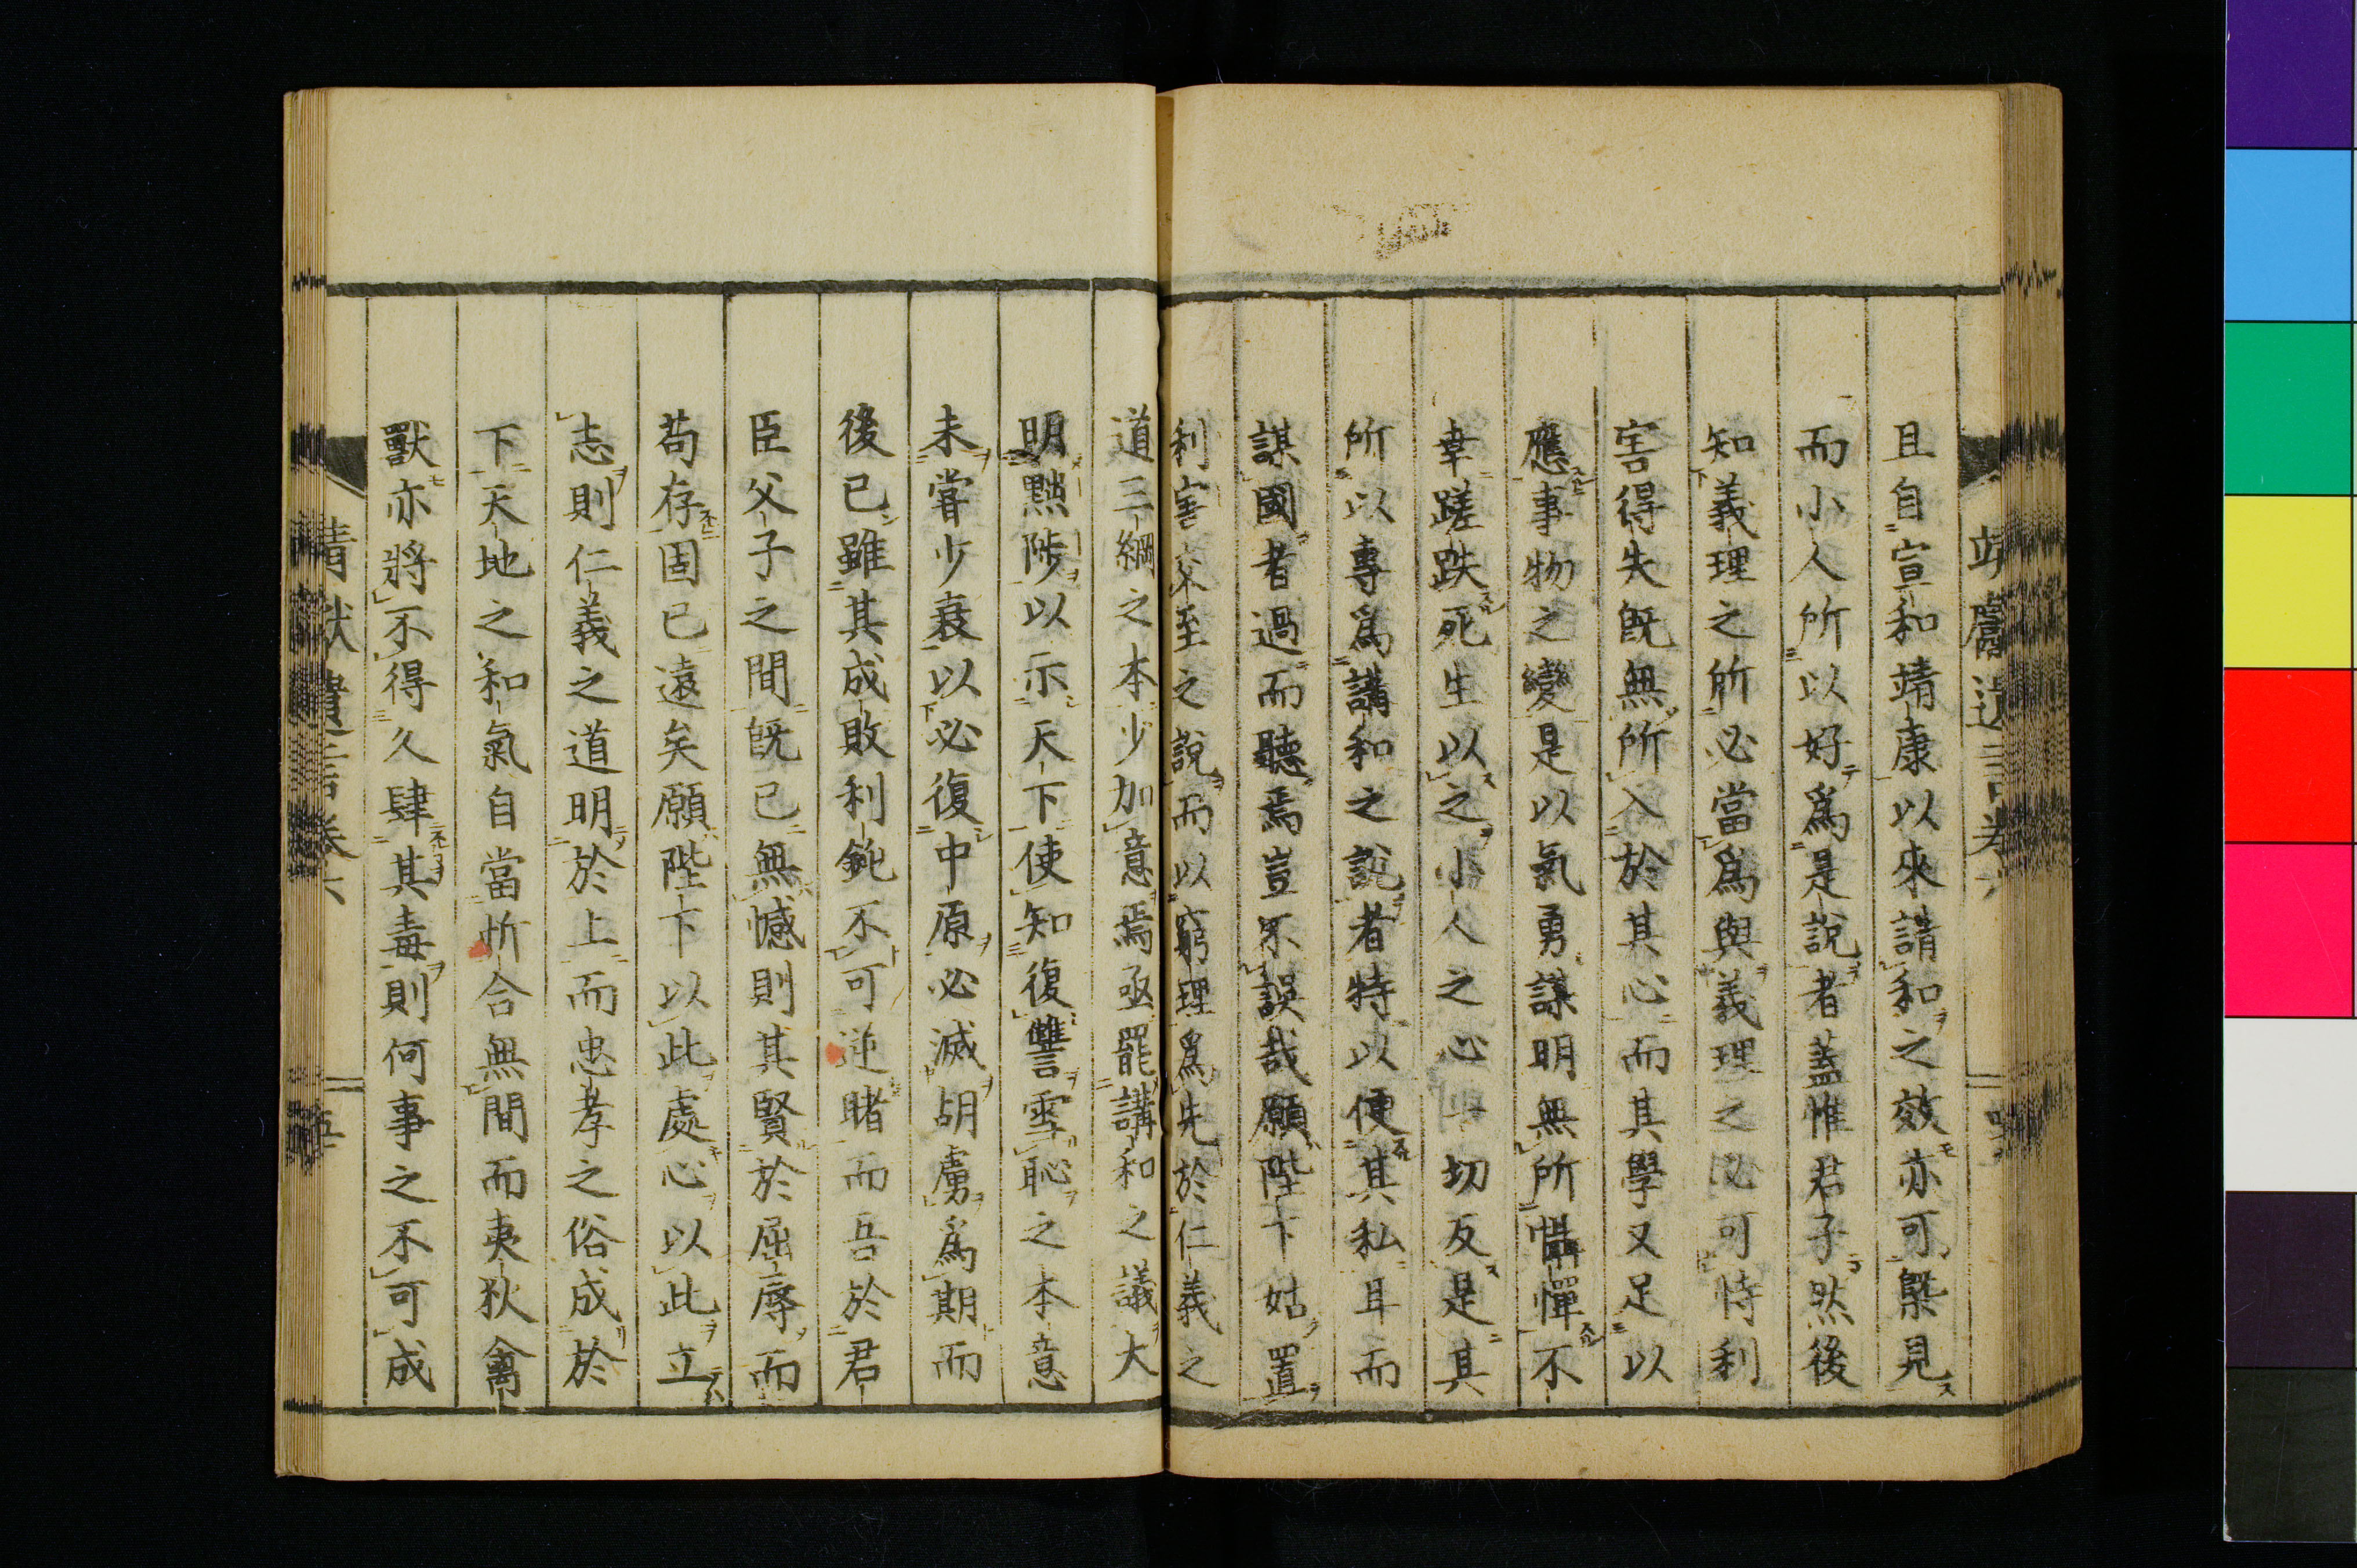 且自宣和靖康以來請和之效亦可槩見
而小人所以好爲是說者蓋惟君子然後
知義理之所必當爲與義理之必可恃利
害得失旣無所入於其心而其學又足以
應事物之變是以氣勇謀明無所懾憚不
幸蹉跌死生以之小人之心一切反是其
所以專爲講和之說者特以便其私耳而
謀國者過而聽焉豈不誤哉願陛下姑置
利害交至之說而以窮理爲先於仁義之
道三綱之本少加意焉亟罷講和之議大
明黜陟以示天下使知復讐雪恥之本意
未嘗少衰以必復中原必滅胡虜爲期而
後已雖其成敗利鈍不可逆睹而吾於君
臣父子之間旣已無憾則其賢於屈辱而
苟存固已遠矣願陛下以此處心以此立
志則仁義之道明於上而忠孝之俗成於
下天地之和氣自當忻合無間而夷狄禽
獸亦將不得久肆其毒則何事之不可成
靖獻遺言卷六